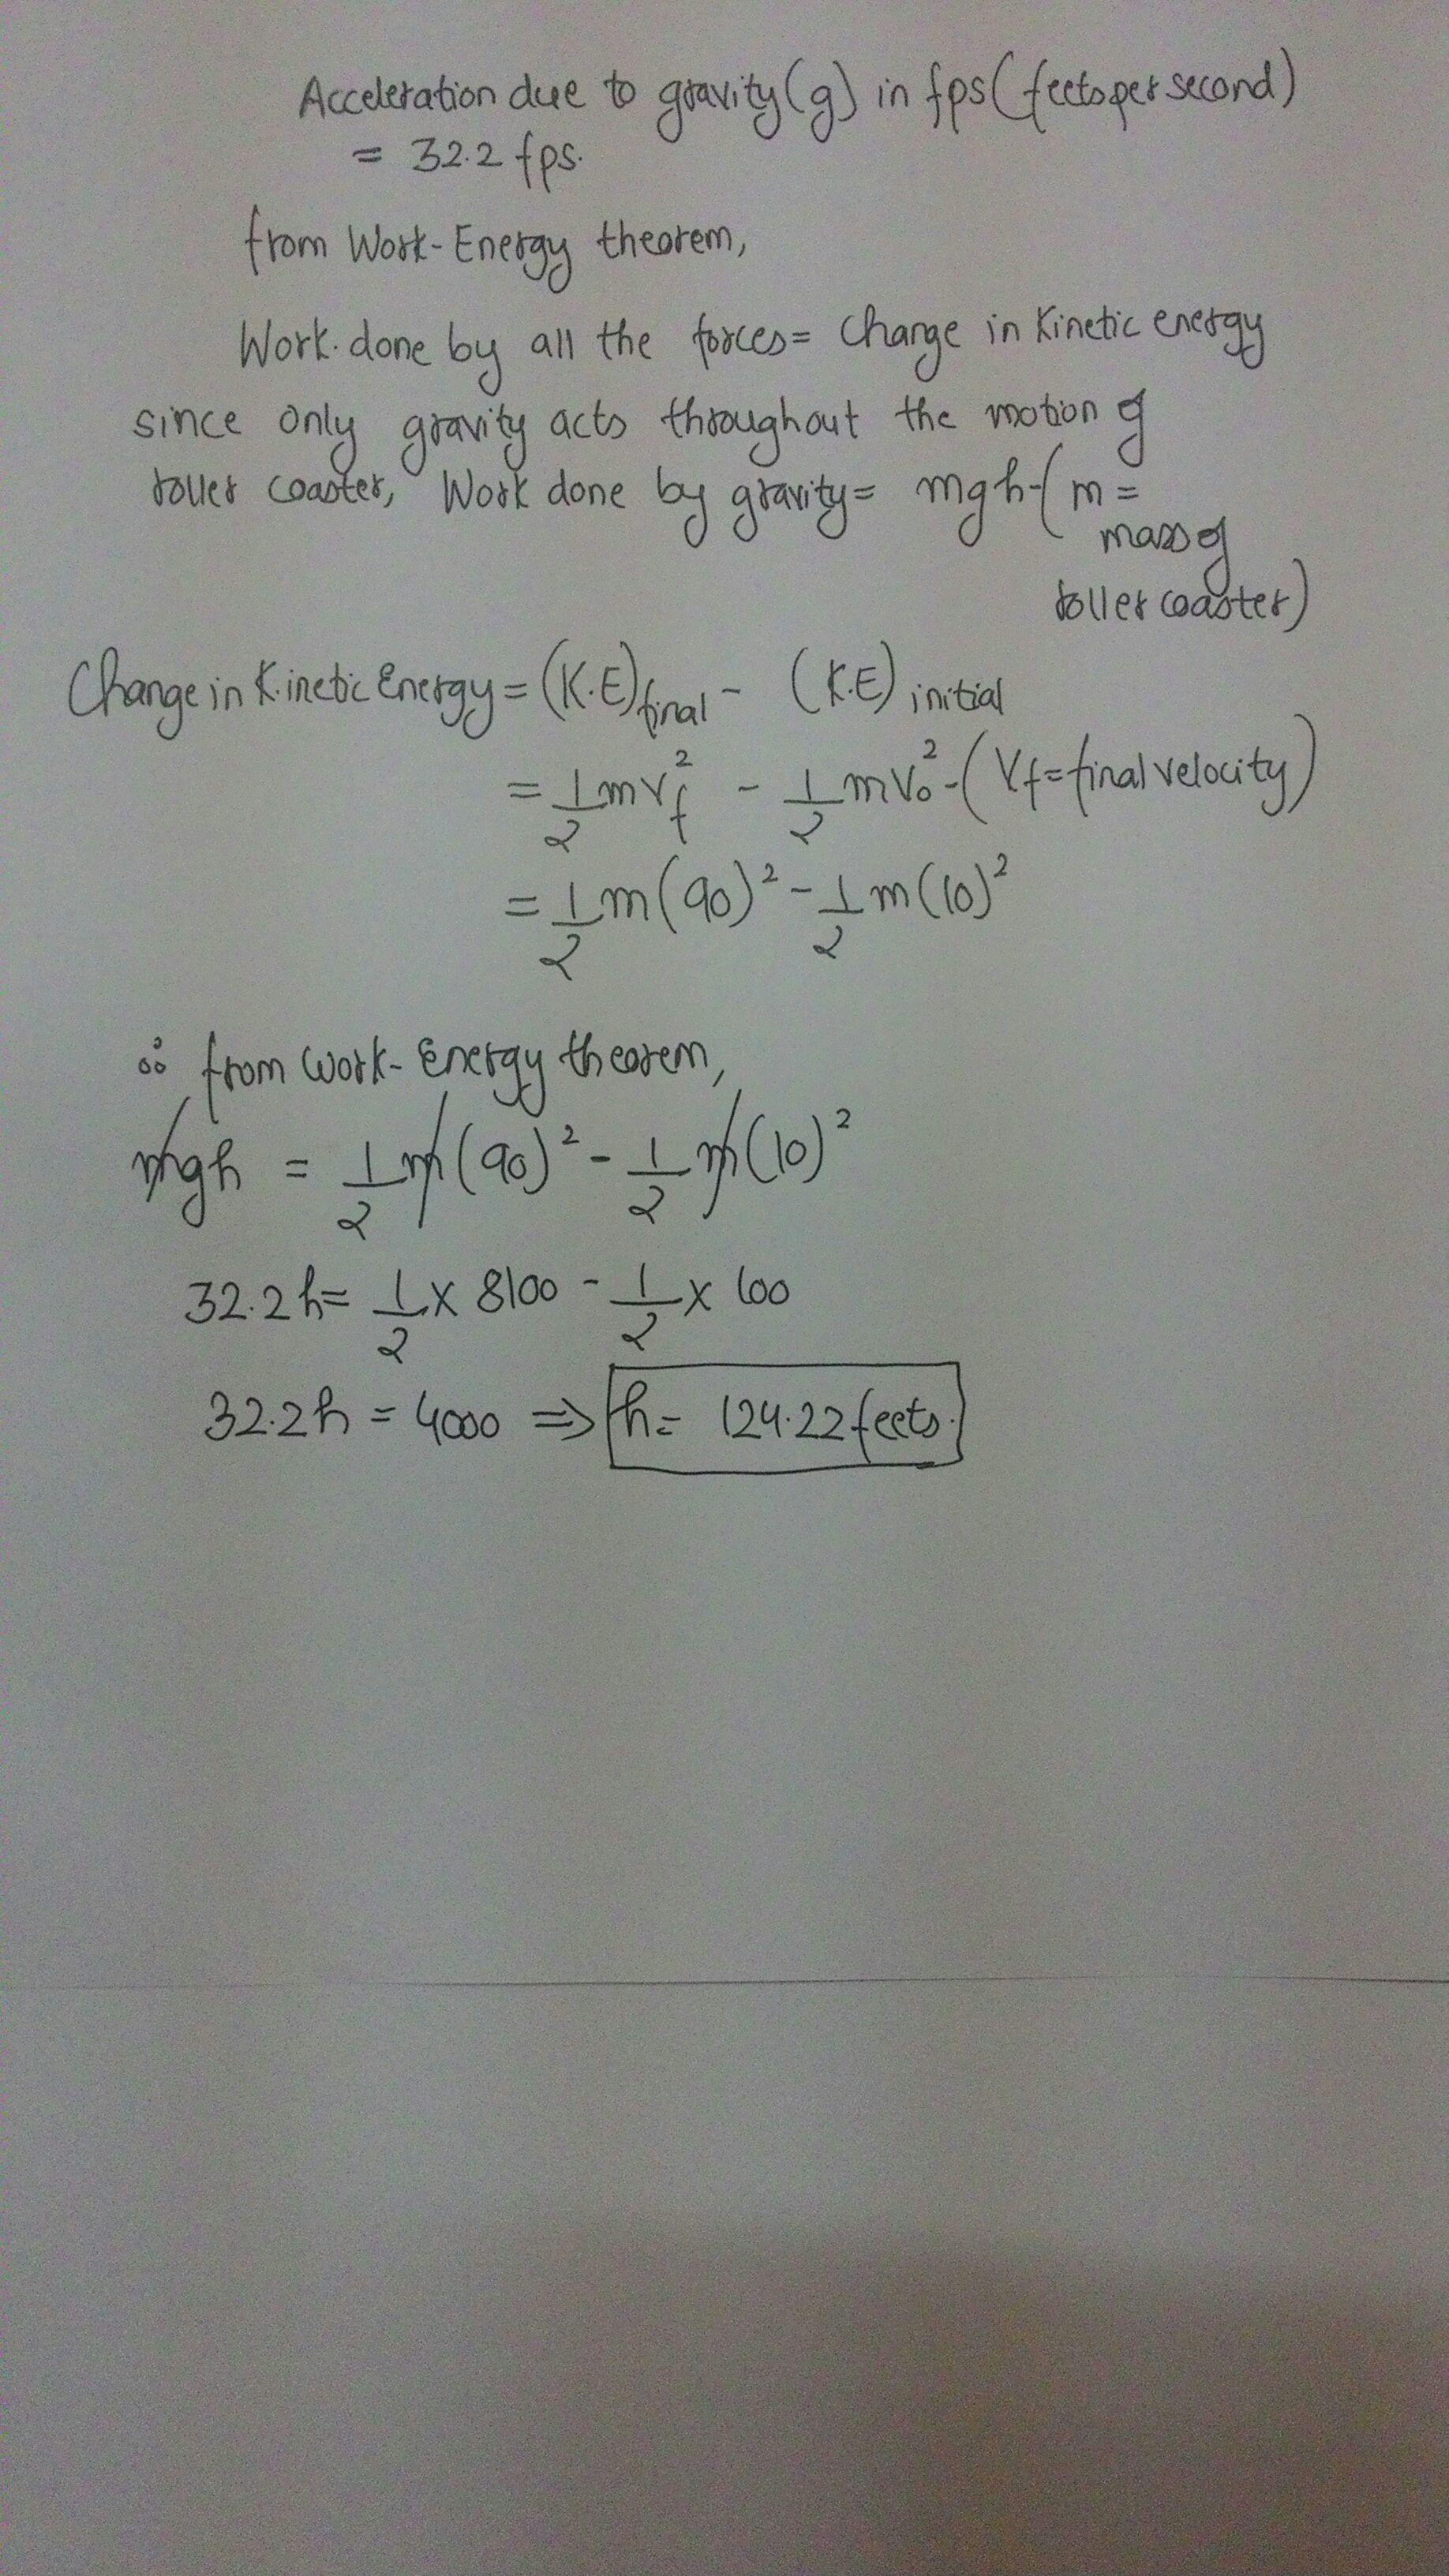 Acceleration due to gravity(g) in fps(feets per second)
= 32.2 fps.
from Work-Energy theorem,
Work done by all the forces= Change in Kinetic energy
since only gravity acts throughout the motion of
roller coaster, Work done by gravity= mgh-(m=
mass of
roller coaster)
Change in Kinetic Energy = (K.E)final - (K.E) initial
= 1/2 mvf² - 1/2 mv₀² -(Vf=final velocity)
= 1/2 m(90)² - 1/2 m(10)²
∴ from Work-Energy theorem,
mgh = 1/2 m(90)² - 1/2 m(10)²
32.2h= 1/2 x 8100 - 1/2 x 100
32.2h = 4000 ⇒ h= 124.22 feets.